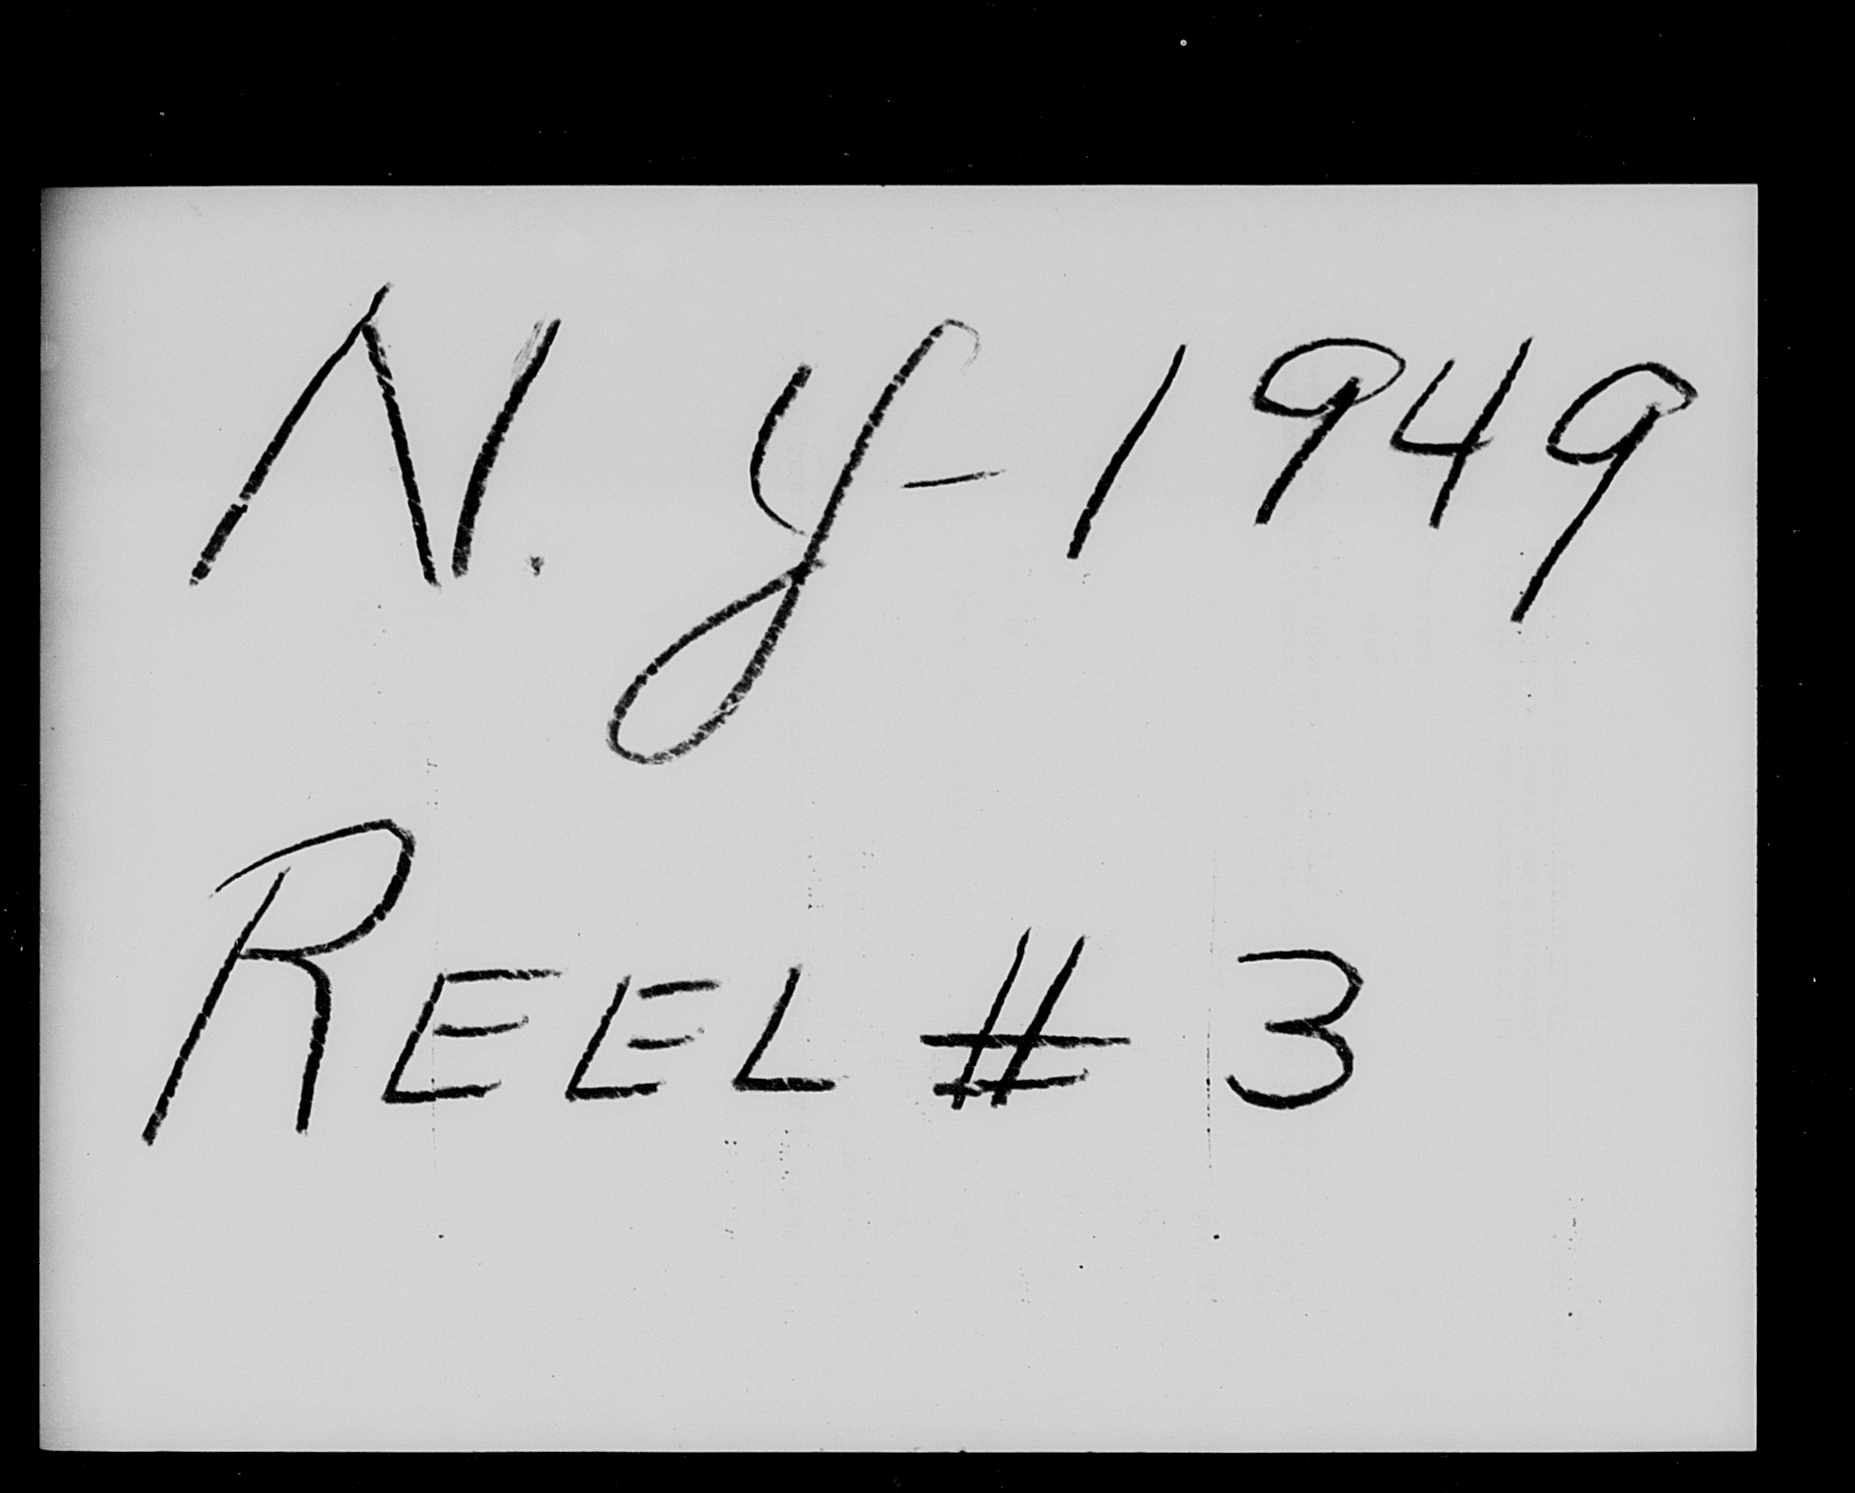 N. Y - 1949
REEL # 3